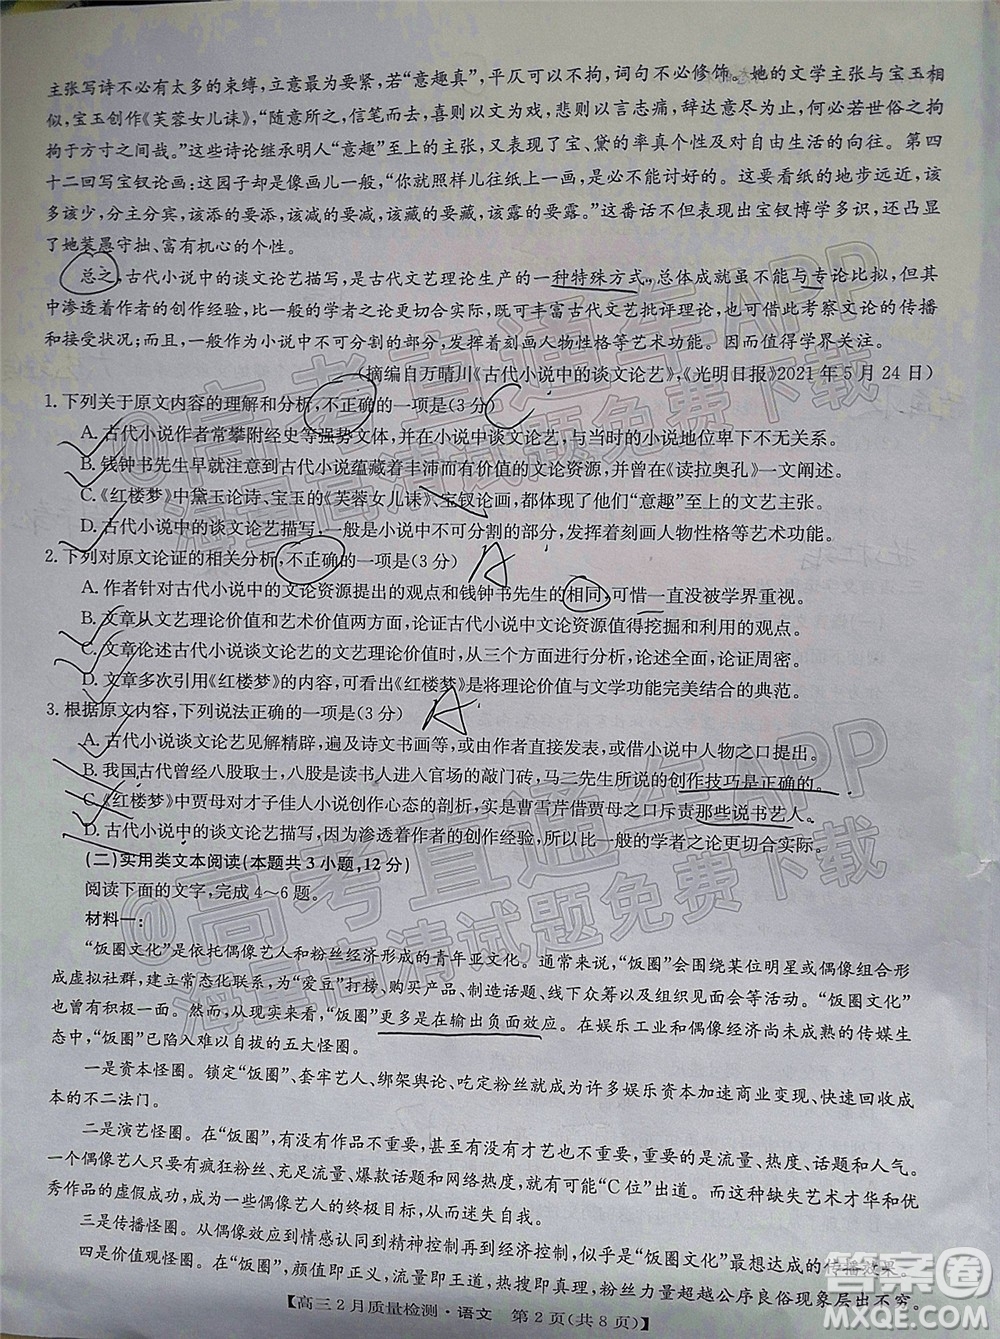 主张写诗不必有太多的束缚,立意最为要紧,若“意趣真”,平仄可以不拘,词句不必修饰。她的文学主张与宝玉相
似,宝玉创作《芙蓉女儿诔》,“随意所之,信笔而去,喜则以文为戏,悲则以言志痛,辞达意尽为止,何必若世俗之拘
拘于方寸之间哉。”这些诗论继承明人“意趣”至上的主张,又表现了宝、黛的率真个性及对自由生活的向往。第四
十二回写宝钗论画:这园子却是像画儿一般,“你就照样儿往纸上一画,是必不能讨好的。这要看纸的地步远近,该
多该少,分主分宾,该添的要添,该减的要减,该藏的要藏,该露的要露。”这番话不但表现出宝钗博学多识,还凸显
了她装愚守拙、富有机心的个性。
总之,古代小说中的谈文论艺描写,是古代文艺理论生产的一种特殊方式,总体成就虽不能与专论比拟,但其
中渗透着作者的创作经验,比一般学者之论更切合实际,既可丰富古代文艺批评理论,也可借此考察文论的传播
和接受状况;而作为小说中不可分割的部分,发挥着刻画人物性格等艺术功能。因而值得学界关注。
(摘编自万晴川《古代小说中的谈文论艺》,《光明日报》2021年5月24日)
1. 下列关于原文内容的理解和分析,不正确的一项是(3分)
A. 古代小说作者常攀附经史等强势文体,并在小说中谈文论艺,与当时的小说地位卑下不无关系。
B. 钱钟书先生早就注意到古代小说蕴藏着丰沛而有价值的文论资源,并曾在《读拉奥孔》一文阐述。
C. 《红楼梦》中黛玉论诗、宝玉的《芙蓉女儿诔》、宝钗论画,都体现了他们“意趣”至上的文艺主张。
D. 古代小说中的谈文论艺描写,一般是小说中不可分割的部分,发挥着刻画人物性格等艺术功能。
2. 下列对原文论证的相关分析,不正确的一项是(3分)
A
A. 作者针对古代小说中的文论资源提出的观点和钱钟书先生的相同,可惜一直没被学界重视。
B. 文章从文论价值和艺术价值两方面,论证古代小说中的文论资源值得挖掘和利用的观点。
C. 文章论述古代小说谈文论艺的文艺理论价值时,从三个方面进行分析,论证周密。
D. 文章多次引用《红楼梦》的内容,可看出《红楼梦》是将理论价值与文学功能完美结合的典范。
3. 根据原文内容,下列说法正确的一项是(3分)
A
A. 古代小说谈文论艺见解精辟,遍及诗文书画等,或由作者直接发表,或借小说中人物之口提出。
B. 我国古代经历八股取士,八股是读书人进入官场的敲门砖,马二先生所说的创作技巧是正确的。
C. 《红楼梦》中贾母对才子佳人小说创作心态的剖析,实是曹雪芹借贾母之口斥责那些说书艺人。
D. 古代小说中的谈文论艺描写,因为渗透着作者的创作经验,所以比一般的学者之论更切合实际。
(二)实用类文本阅读(本题共3小题,12分)
阅读下面的文字,完成4~6题。
材料一:
“饭圈文化”是依托偶像艺人和粉丝经济形成的青年亚文化。通常来说,“饭圈”会围绕某位明星或偶像组合形
成虚拟社群,建立常态化联系,为“爱豆”打榜、购买产品、制造话题、线下众筹以及组织见面会等活动。“饭圈文化”
有积极的一面。然而当前,“饭圈”更多是在输出负面效应。在娱乐工业和偶像经济尚未成熟的传媒生态
中,“饭圈”已沦为备受诟病的五大怪圈。
一是资本怪圈。锁定“饭圈”、套牢艺人、绑架舆论、吃定粉丝就成为许多娱乐资本加速商业变现、快速回收成
本的不二法门。
二是演艺怪圈。在“饭圈”,有没有作品不重要,甚至有没有才艺也不重要,重要的是流量、热度、话题和人气。
一个偶像艺人只要有疯狂粉丝、充足流量、持续热度、优势数据就有机会“C位”出道。而这种缺失艺术才华和优
秀作品的虚假成功,成为一些偶像艺人的幻觉,从而迷失自我。
三是传播怪圈。从偶像效应到情感认同到精神控制再到经济控制,似乎是“饭圈文化”最想达成的传播效果。
四是价值观怪圈。在“饭圈”,颜值即正义,流量即王道,热搜即实绩,粉丝力量超越公序良俗等现象层出不穷。
【高三2月质量检测·语文 第2页(共8页)】
@高考直通车APP
海量高清试题免费下载
@高考直通车APP
海量高清试题免费下载
答案圈
MXQE.COM